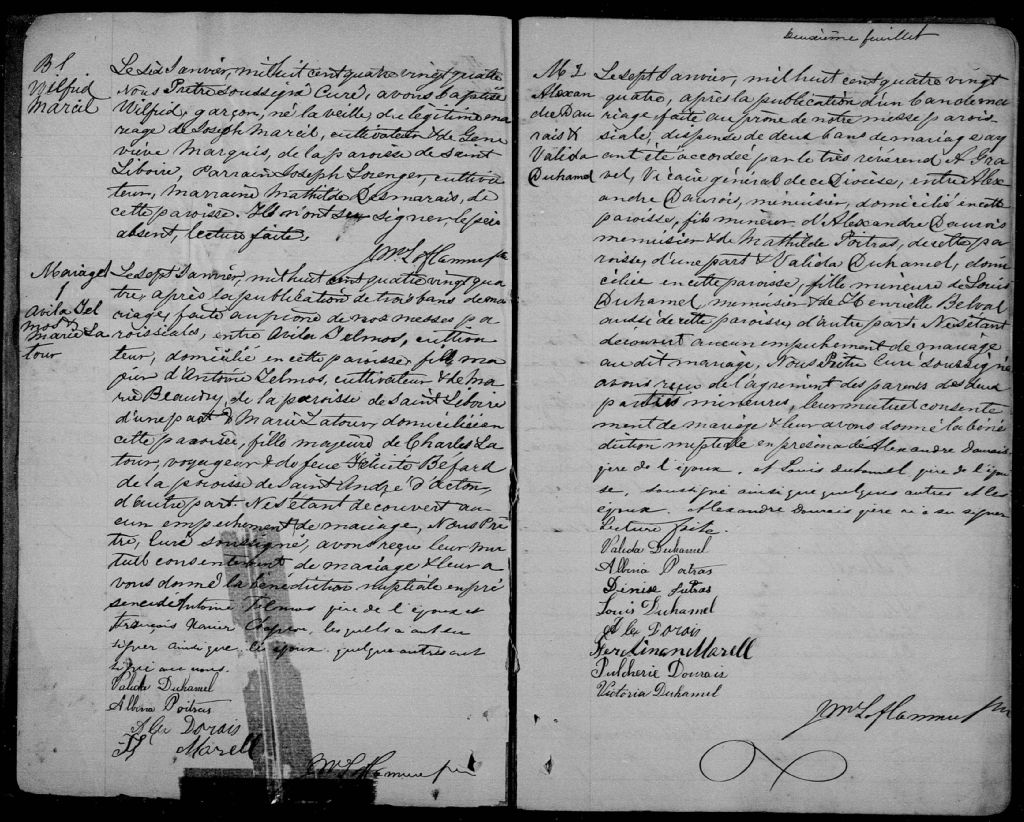 B 1
Wilfrid
Marcil
Le six Janvier, mil huit cent quatre vingt quatre
Nous Prêtre soussigné Curé, avons baptisé
Wilfrid, garçon, né la veille, du légitime ma
riage de Joseph Marcil, cultivateur & de Gene
viève Marquis, de la paroisse de Saint
Liboire, Parrain Joseph cultiva
teur, Marraine Mathilde Desmarais, de
cette paroisse. Ils n'ont su signer, le père
absent, lecture faite.
Mariage
1
Avila Tel
mos &
Marie La
tour
Le sept Janvier, mil huit cent quatre vingt qua
tre, après la publication de trois bans de ma
riage, faite au prône de nos messes pa
roissiales, entre Avila Telmos, cultiva
teur, domicilié en cette paroisse, fils ma
jeur d'Antoine Telmos, cultivateur & de Ma
rie Beaudry, de la paroisse de Saint Liboire
d'une part & Marie Latour, domiciliée en
cette paroisse, fille majeure de Charles La
tour, voyageur & de feue Félicité Béfard
de la paroisse de Saint André d'Acton,
d'autre part. N'es'étant découvert au
cun empêchement de mariage, Nous Prê
tre, Curé soussigné, avons reçu leur mu
tuel consentement de mariage & leur a
vons donné la bénédiction nuptiale en pré
sence de Antoine Telmos père de l'époux et
François Xavier lesquels ont su
signer ainsi que les époux. quelques autres ont
signé avec nous.
Valida Duhamel
Albina Poitras
Alex Dorais
F Marell
Deuxième feuillet
M 2
Alexan
dre Dau
rais &
Valida
Duhamel
Le sept Janvier, mil huit cent quatre vingt
quatre, après la publication d'un ban de ma
riage faite au prône de notre messe parois
siale, dispense de deux bans de mariage ay
ant été accordée par le très révérend A Gra
vel, Vicaire général de ce Diocèse, entre Alex
andre Daurais, menuisier, domicilié en cette
paroisse, fils mineur d'Alexandre Daurais
menuisier & de Mathilde Poitras, de cette pa
roisse, d'une part & Valida Duhamel, domi
ciliée en cette paroisse, fille mineure de Louis
Duhamel, menuisier & de Henriette Belval
aussi de cette paroisse, d'autre part. N'es'étant
découvert aucun empêchement de mariage
au dit mariage, Nous Prêtre Curé soussigné
avons reçu de l'agrément des parents des deux
parties mineures, leur mutuel consente
ment de mariage & leur avons donné la béné
diction nuptiale en présence de Alexandre Daurais
père de l'époux. et Louis Duhamel père de l'épou
se, soussigné ainsi que quelques autres et les
époux. Alexandre Daurais père n'a su signer
Lecture faite.
Valida Duhamel
Albina Poitras
Denise Putras
Louis Duhamel
Alex Dorais
Ferdinan Marell
Pulcherie Dourais
Victoria Duhamel